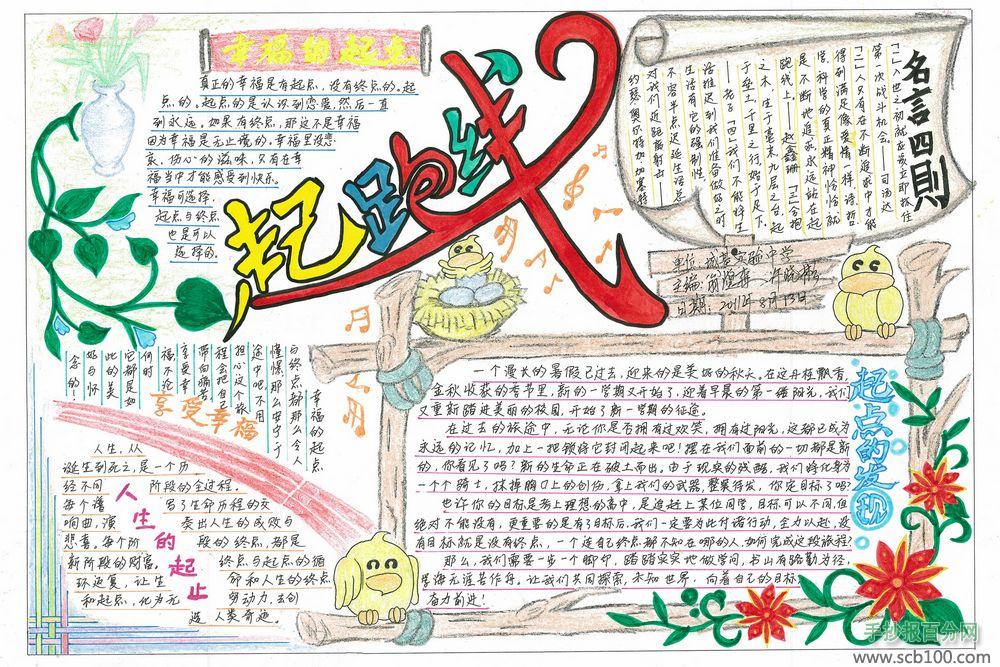 幸福的起点
真正的幸福是有起点,没有终点的。起
点的。起点的是认识到恶果,然后一直
到永远。如果有终点,那这不是幸福
因为幸福是无止境的。幸福里没悲
哀,伤心的滋味,只有在幸
福当中才能感受到快乐。
幸福可选择,
起点与终点
也是可以
选择的。
起跑线
名言四则
「一」人世之初就应该立即抓住
第一次战斗机会。——司汤达
「二」人只有在不断追求中才能
得到满足像爱情一样,诗,哲
学,科学的真正精神恰恰就
是不断地追求,永远站在起
跑线上。——赵鑫珊
「三」合抱
之木,生于毫末;九层之台,起
于垒土;千里之行,始于足下。
——老子
「四」我们不能将生
活推迟到我们准备做好之时
生活有它的强制性
不容半点迟延,生活总
对我们近距离射击——
约瑟·奥尔特加·加塞特
实验中学
主编:
日期:2011年8月13日
幸福的起点
与终点都那么令人
憧憬,那么安宁于
途中吧,不用
担心这个旅
程会把自己
带向痛苦。
享受幸
福,不论
何时
它都是如
此的美
好与怀
念的!
享受幸福
人生的起止
人生,从
诞生到死亡,是一个历
经不同阶段的全过程,
每个谱写了生命历程的交
响曲,演奏出人生的成败与
悲喜。每个阶段的终点,都是
新阶段的财富。终点与起点的循
环返复,让生命和人生的终点
和起点,化为无穷动力,去创
造人类奇迹。
起点的发现
一个漫长的暑假已过去,迎来的是美好的秋天,在这丹桂飘香,
金秋收获的季节里,新的一学期又开始了,迎着早晨的第一缕阳光,我们
又重新踏进美丽的校园,开始了新一学期的征途。
在过去的旅途中,无论你是否拥有过欢笑,拥有过阳光,这都已成为
永远的记忆,加上一把锁将它封闭起来吧!摆在我们面前的一切都是新
的,你看见了吗?新的生命正在破土而出。由于现实的残酷,我们将化身为
一个个骑士,抹掉胸口上的创伤,拿上我们的武器,整装待发,你定目标了吗?
也许你的目标是考上理想的高中,是追赶上某位同学,目标可以不同,但
绝对不能没有,更重要的是有了目标后,我们一定要为此付诸行动,全力以赴,没
有目标就是没有终点,一个连自己终点都不知在哪的人,如何完成这段旅程?
那么,我们需要一步一个脚印,踏踏实实地做学问,书山有路勤为径,
学海无涯苦作舟,让我们共同探索,未知世界,向着自己的目标
奋力前进!
手抄报百分网
www.scb100.com